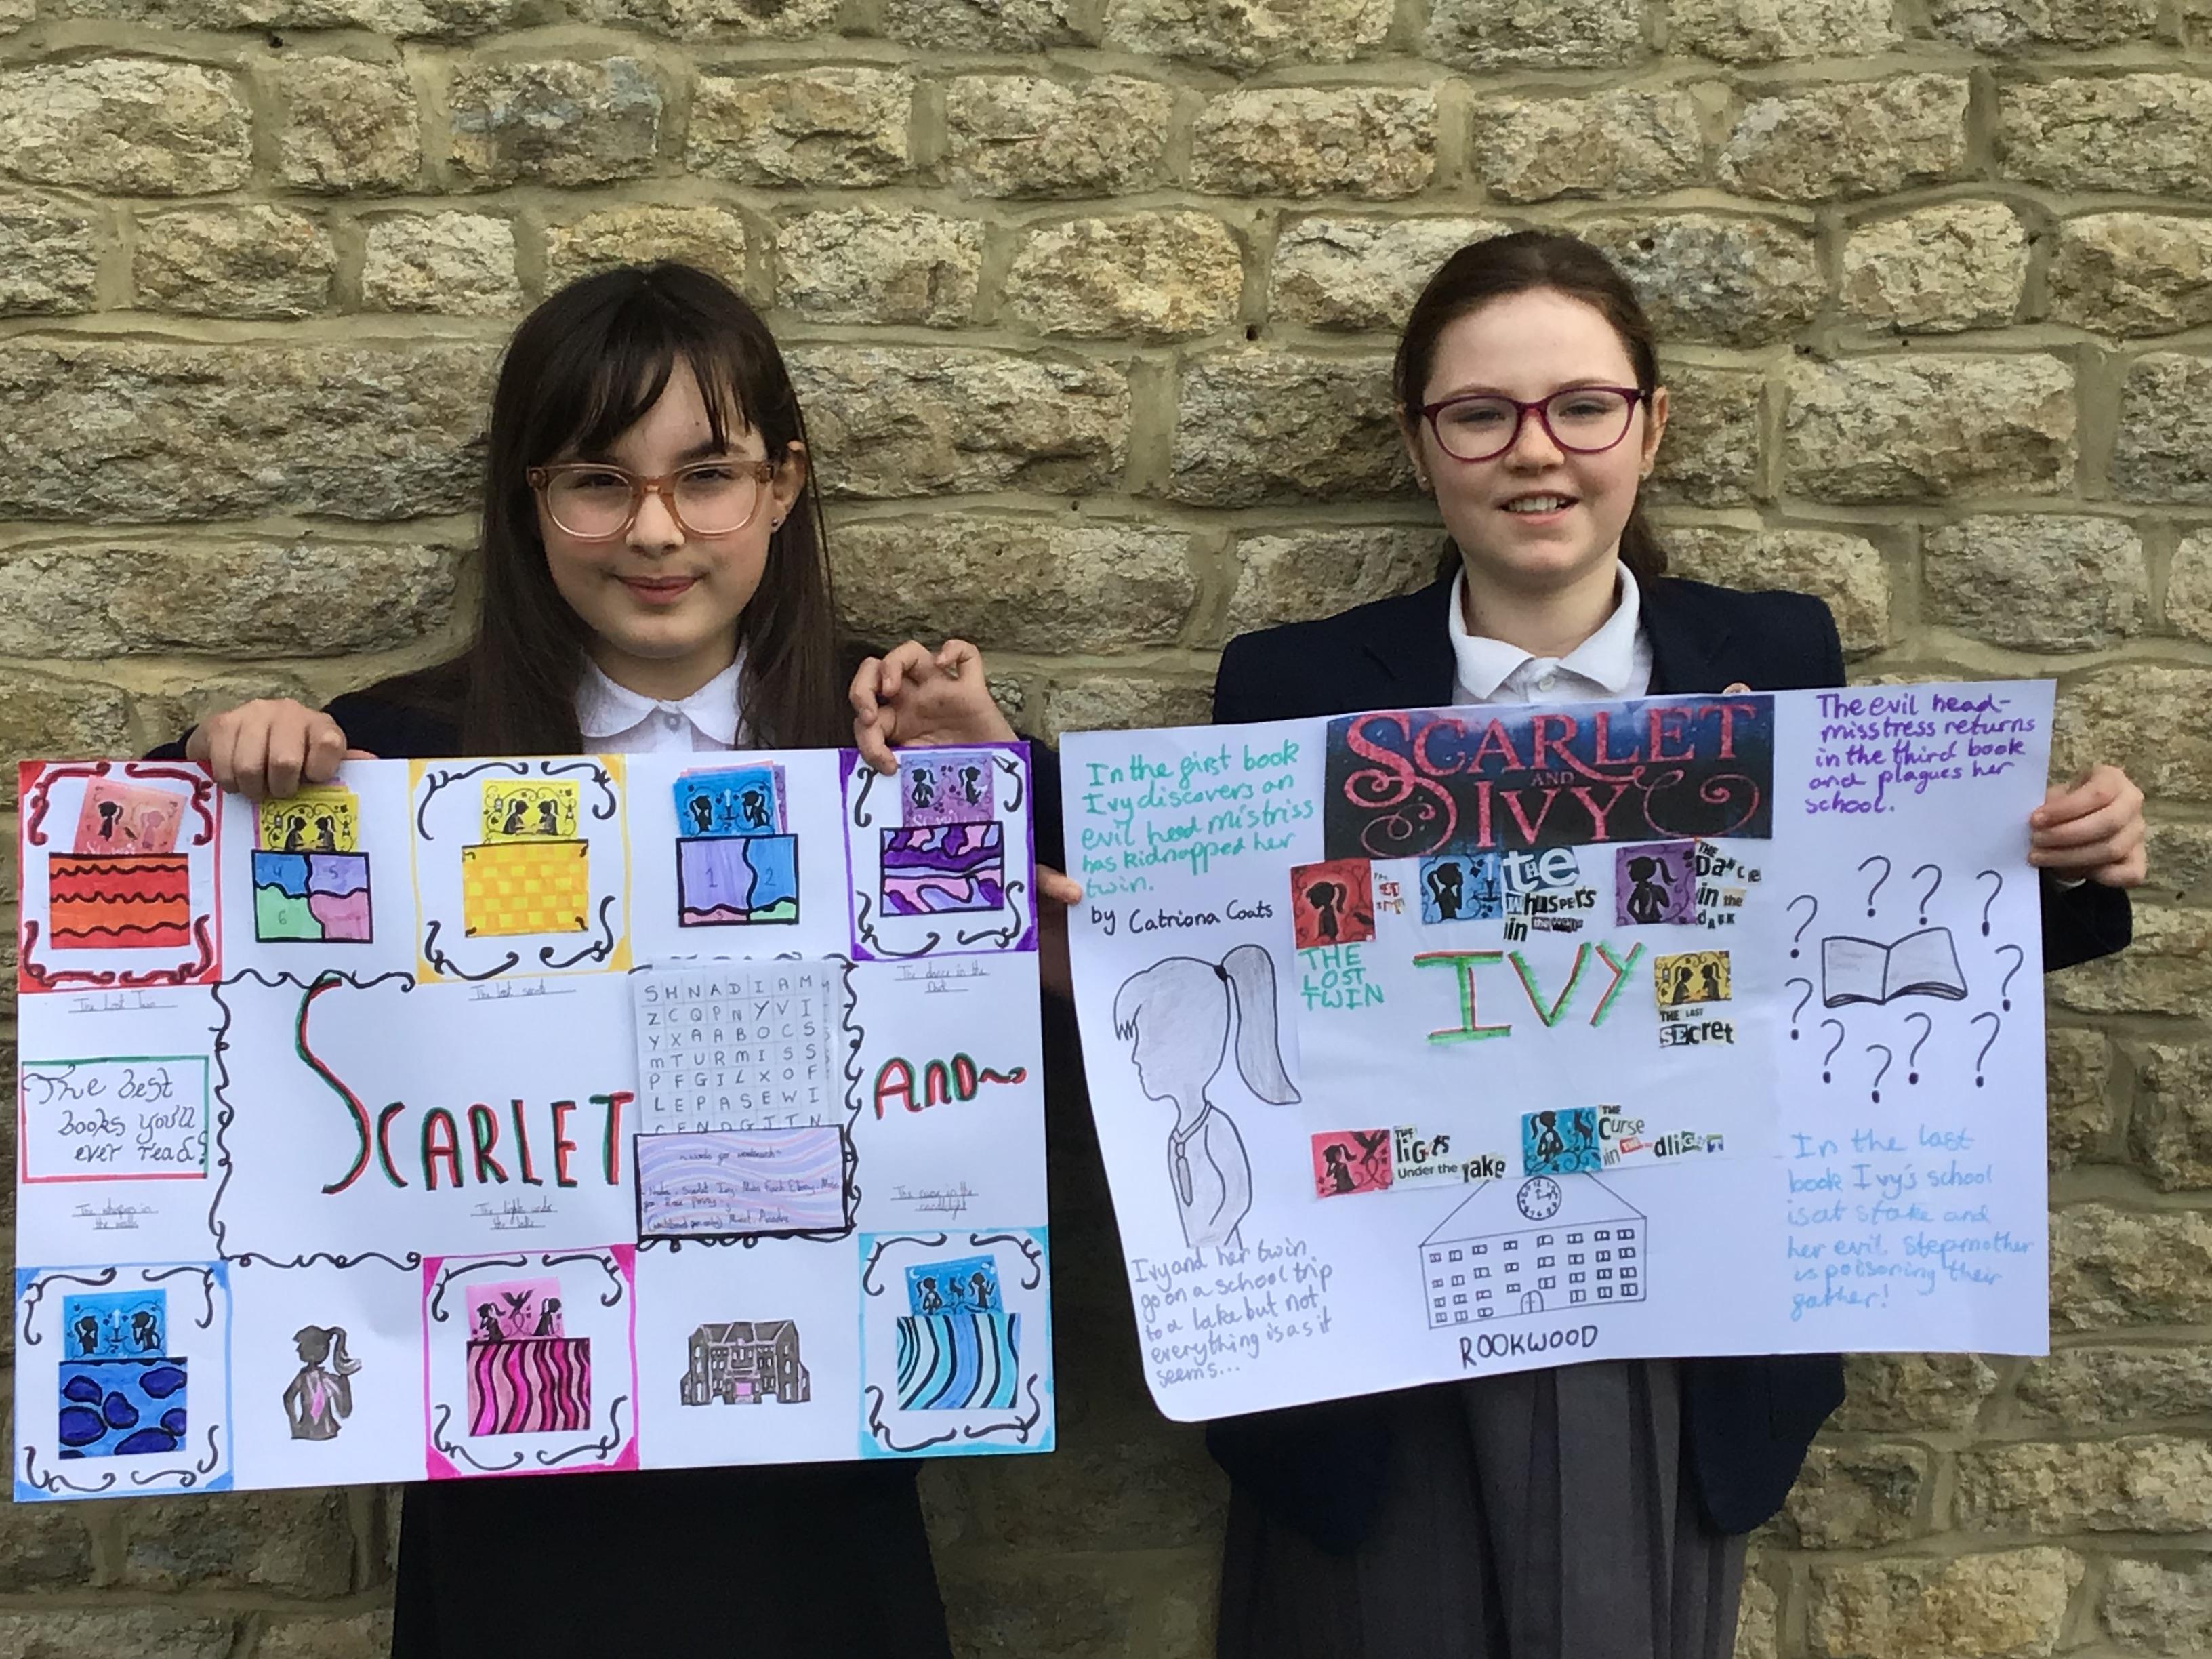 The Lost Twin
The last secret
The dance in the
Dark
The best
books you'll
ever read!
SCARLET
AND
SHNADIAM
ZCQPNYVI
YXAABOCS
mTURMISS
PFGILXOF
LEPASEWI
CFNDGITN
~words for wordsearch~
The whispers in
the walls
The lights under
the lake
The curse in the
candlelight
4
5
6
1
2
3
In the first book
Ivy discovers an
evil head mistriss
has kidnapped her
twin.
by Catriona Coats
SCARLET
AND
IVY
The evil head-
misstress returns
in the third book
and plagues her
school.
THE
LOST
TWIN
THE
WHISPERS
in the walls
THE
Dance
in the
dARK
IVY
THE LAST
SEcret
THE
liGhts
Under the lake
THE
Curse
in
ROOKWOOD
Ivy and her twin
go on a school trip
to a lake but not
everything is as it
seems...
In the last
book Ivy's school
is at stake and
her evil stepmother
is poisoning their
father!